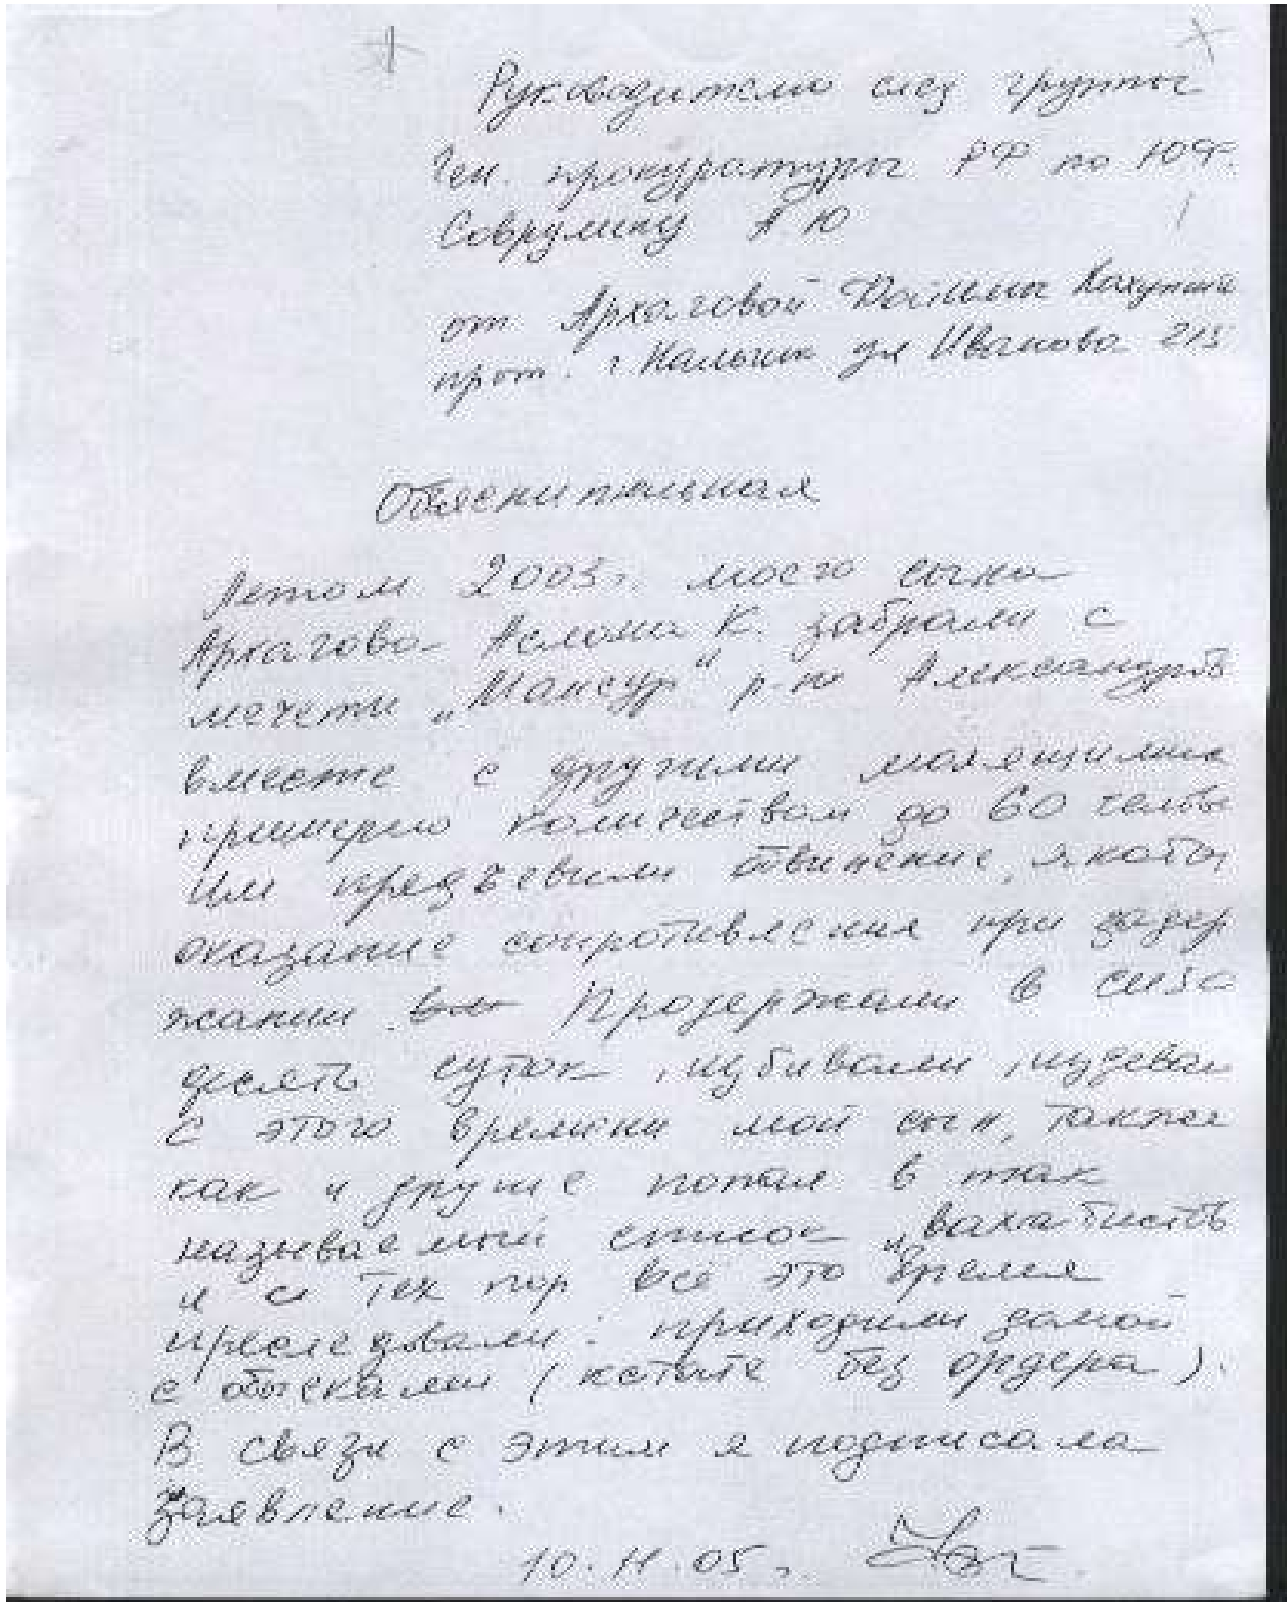 Руководителю след группы
Ген. прокуратуры РФ по ЮФ.
Соврулину А Ю
от Архаговой
прож. г Нальчик ул Иванова
Объяснительная
Летом 2005г. моего сына
Архагова Аслана К. забрали с
мечети „Мансур" р-н Александров
вместе с другими молящимися
примерно количеством до 60 челов
Им предъевили обвинение, якобы
оказание сопротивления при задер
жании. Продержали в сизо
десять суток, избивали, издевал
С этого времени мой сын, также
как и другие попал в так
называемый список „вахабистов
и с тех пор всё это время
преследовали: приходили домой
с обысками (кстате без ордера).
В связи с этим я подписала
заявление.
10.11.05г.